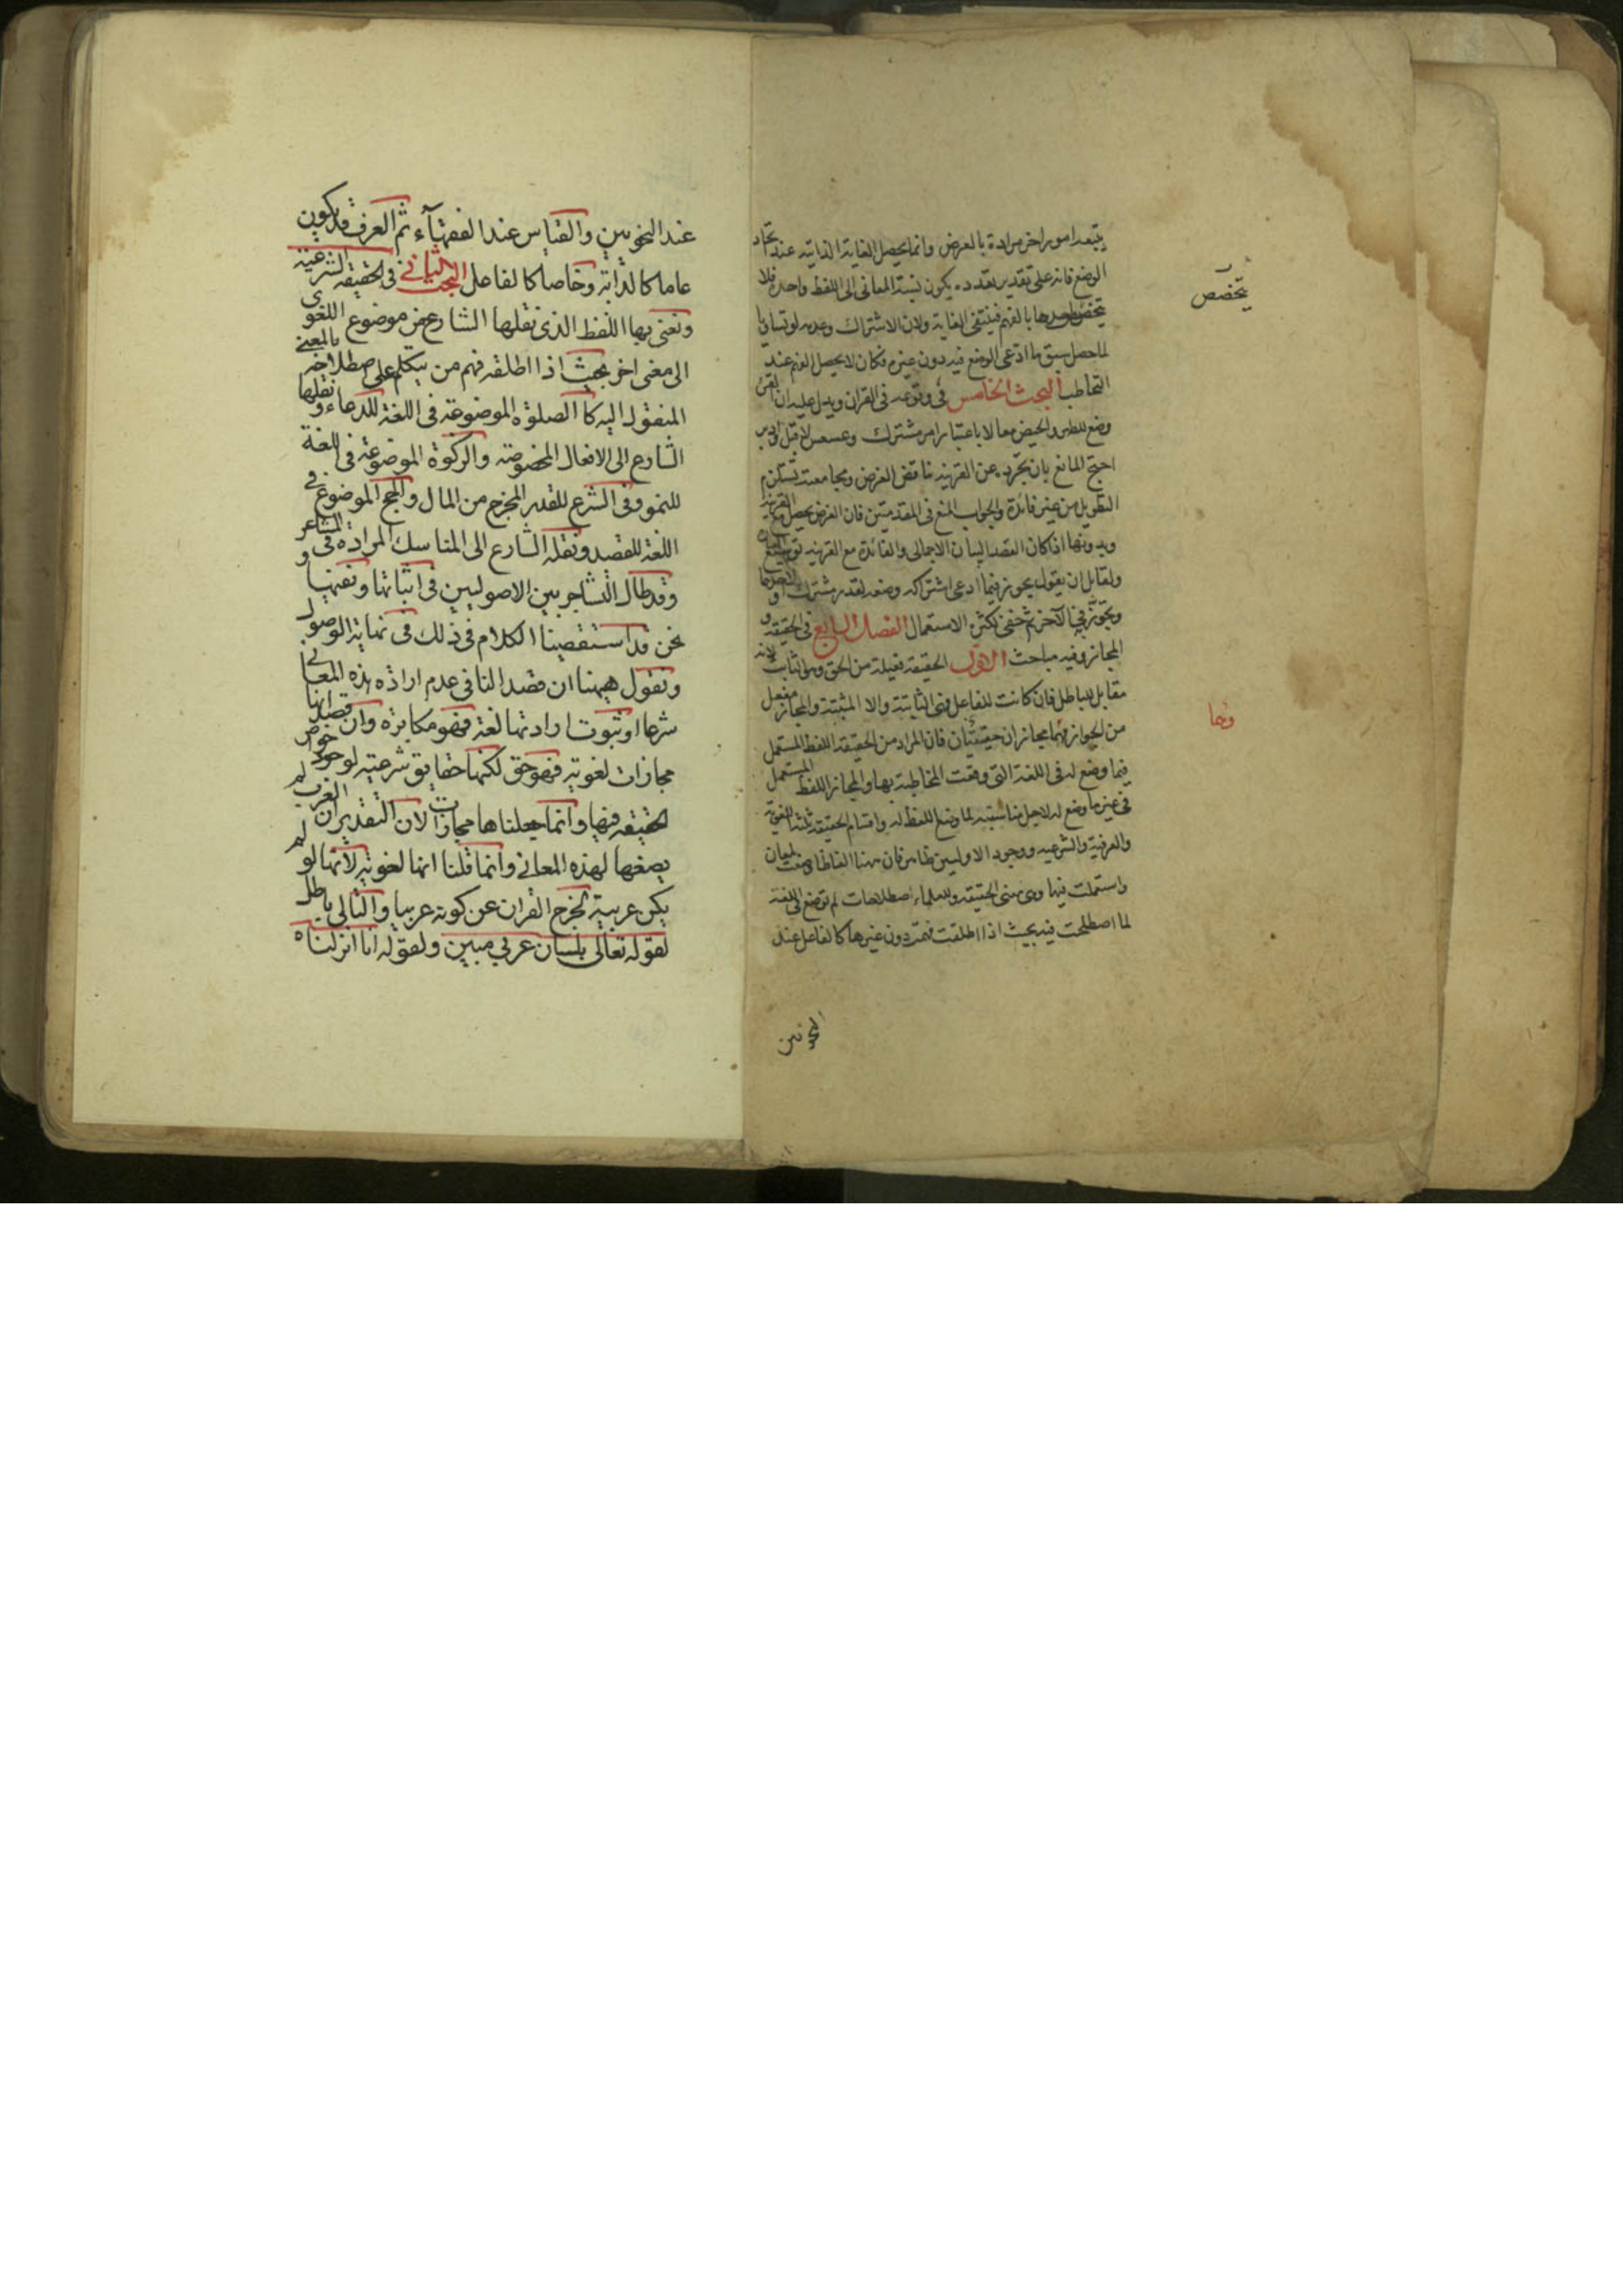 يتبعه امور اخر مرادة بالعرض وانما يحصل الغاية الذاتية عند اتحاد
الوضع فانه على تقدير تعدده يكون نسبة المعاني الى اللفظ واحدة فلا
يتخصص احدها بالفهم فينتفى الغاية ولان الاشتراك وعدمه لو تساويا
لما حصل سبق ما ادعى الوضع فيه دون غيره فكان لا يحصل الفهم عند
التخاطب البحث الخامس في وقوعه في القران ويدل عليه ان القرء
وضع للطهر والحيض معا لا باعتبار امر مشترك وعسعس لاقبل وادبر
احتج المانع بان تجرده عن القرينة يناقض الغرض ومجامعته تستلزم
التطويل من غير فائدة والجواب المنع في المقدمتين فان الغرض يحصل مع القرينة
وبدونها اذا كان القصد البيان الاجمالى والفائدة مع القرينة
ولقايل ان يقول يجوز فيما ادعى اشتراكه وضعه لقدر مشترك او لاحدهما
ويجوز في الآخر ثم خفى لكثرة الاستعمال الفصل الرابع في الحقيقة و
المجاز وفيه مباحث الاول الحقيقة فعيلة من الحق وهو الثابت لانه
مقابل للباطل فان كانت للفاعل فهى الثابتة والا المثبتة والمجاز مفعل
من الجواز فهما مجازان حقيقتان فان المراد من الحقيقة اللفظ المستعمل
فيما وضع له في اللغة التى وقعت المخاطبة بها والمجاز اللفظ المستعمل
في غير ما وضع له لاجل مناسبته لما وضع اللفظ له واقسام الحقيقة ثلثة اللغوية
والعرفية والشرعية ووجود الاوليين ظاهر فان هنا الفاظا وضعت لمعان
واستعملت فيها وهى معنى الحقيقة وللعلماء اصطلاحات لم توضع في اللغة
لما اصطلحت فيه بحيث اذا اطلقت فهمت دون غيرها كالفاعل عند
النحويين
يتخصص
وهما
عند النحويين والقياس عند الفقهآء ثم العرف قد يكون
عاما كالدابة وخاصا كالفاعل البحث الثاني في الحقيقة الشرعية
ونعنى بها اللفظ الذى نقلها الشارع عن موضوع اللغوى
الى معنى اخر بحيث اذا اطلقه فهم من يتكلم على اصطلاحه بالمعنى
المنقول اليه كالصلوة الموضوعة فى اللغة للدعاء ونقلها
الشارع الى الافعال المخصوصة والزكوة الموضوعة فى اللغة
للنمو وفى الشرع للقدر المخرج من المال والحج الموضوع فى
اللغة للقصد ونقله الشارع الى المناسك المرادة فى المشاعر
وقد طال التشاجر بين الاصوليين فى اثباتها ونفيها و
نحن قد استقصينا الكلام فى ذلك فى نهاية الوصول
ونقول ههنا ان قصد النافى عدم ارادة هذه المعانى
شرعا او ثبوت ارادتها لغة فهو مكابرة وان قصد انها
مجازات لغوية فهو حق لكنها حقايق شرعية لوجود خواص
الحقيقة فيها وانما جعلناها مجازات لان التقدير ان العرب لم
يضعها لهذه المعانى وانما قلنا انها لغوية لانها لو لم
يكن عربية لخرج القران عن كونه عربيا والتالى باطل
لقوله تعالى بلسان عربي مبين ولقوله انا انزلناه